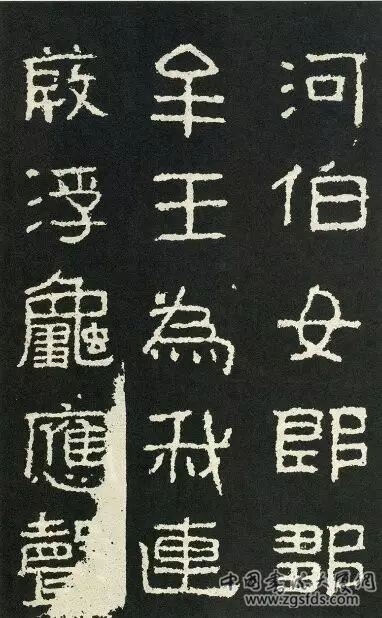 河伯女郎鄒
牟王為我連
葭浮龜應聲
www.zgsfds.com